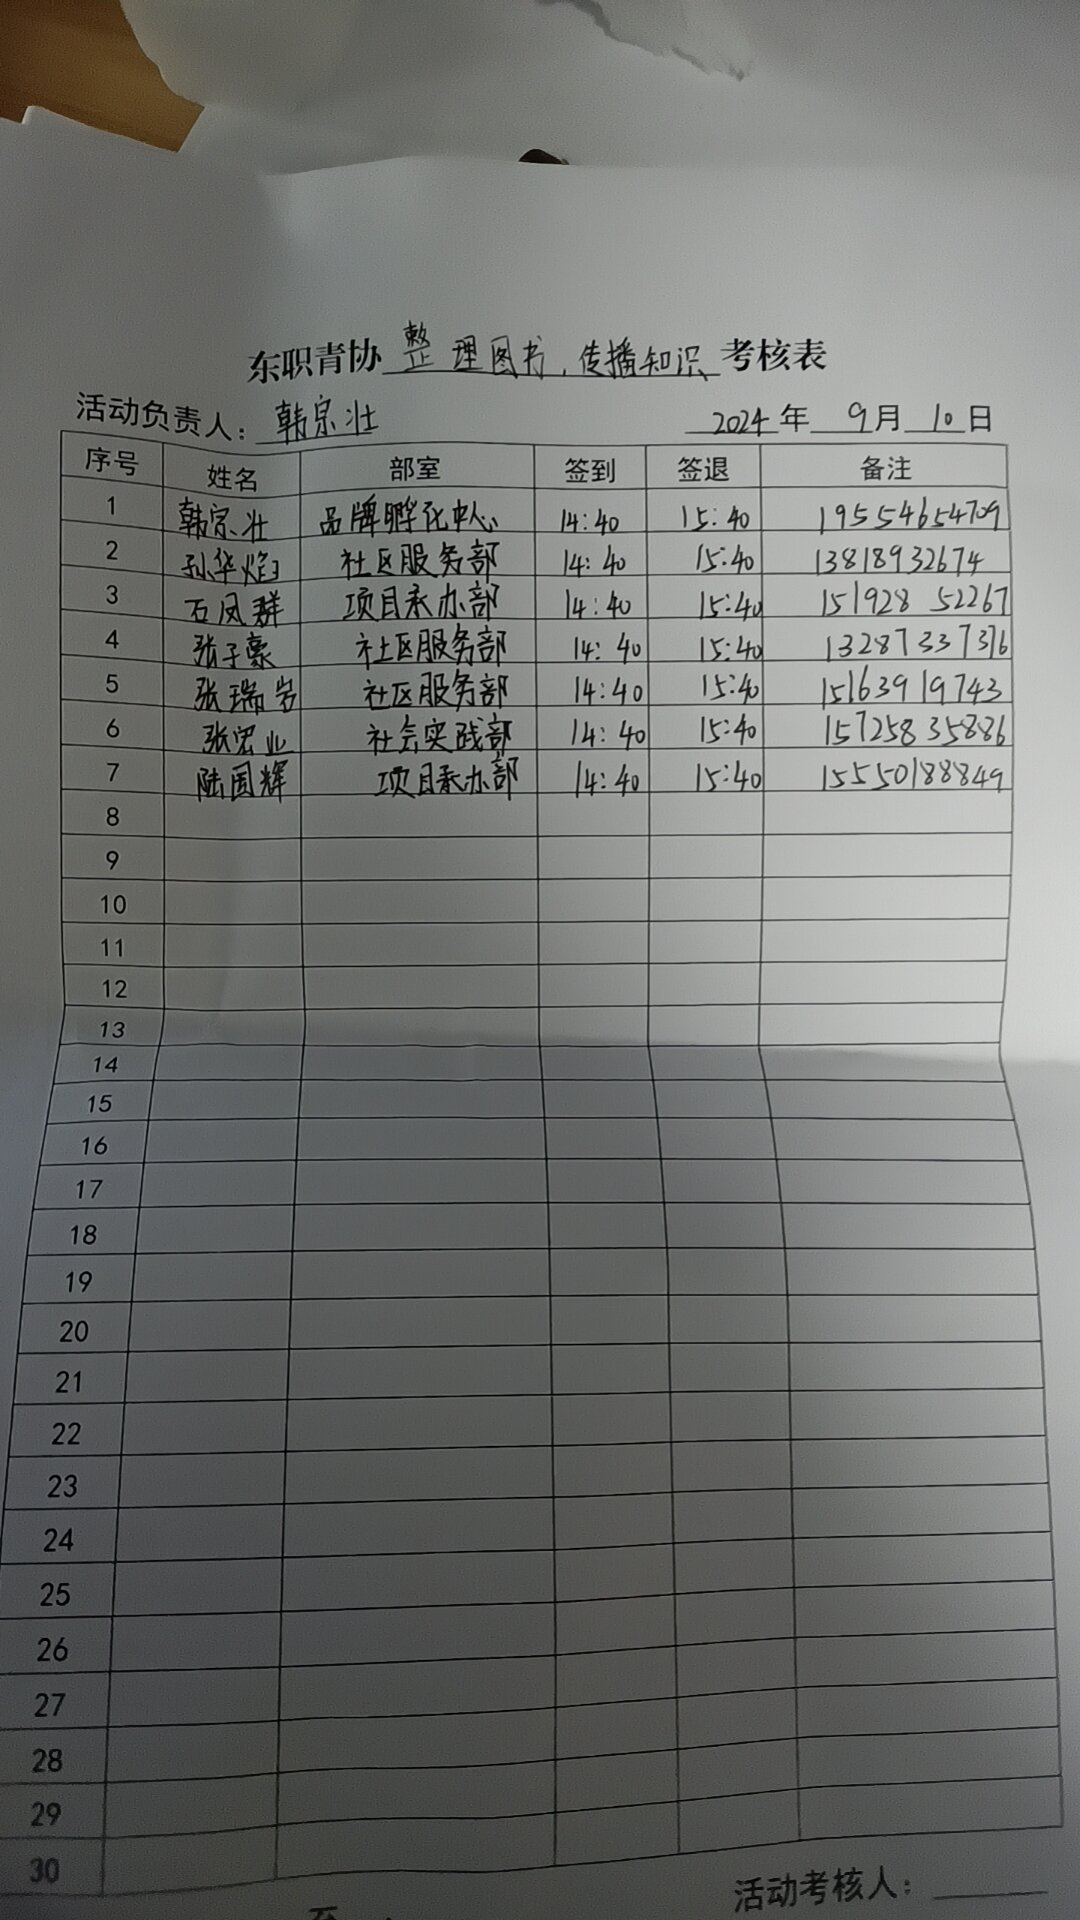 东职青协 整理图书，传播知识 考核表
活动负责人：韩宗壮 2024年 9月 10日
序号 姓名 部室 签到 签退 备注
1 韩宗壮 品牌孵化中心 14:40 15:40 19554654709
2 孙华焰 社区服务部 14:40 15:40 13818932674
3 石凤群 项目承办部 14:40 15:40 15192852267
4 张子豪 社区服务部 14:40 15:40 13287337376
5 张瑞岩 社区服务部 14:40 15:40 15163919743
6 张宏业 社会实践部 14:40 15:40 15725835886
7 陆国辉 项目承办部 14:40 15:40 15550188849
8
9
10
11
12
13
14
15
16
17
18
19
20
21
22
23
24
25
26
27
28
29
30
活动考核人：